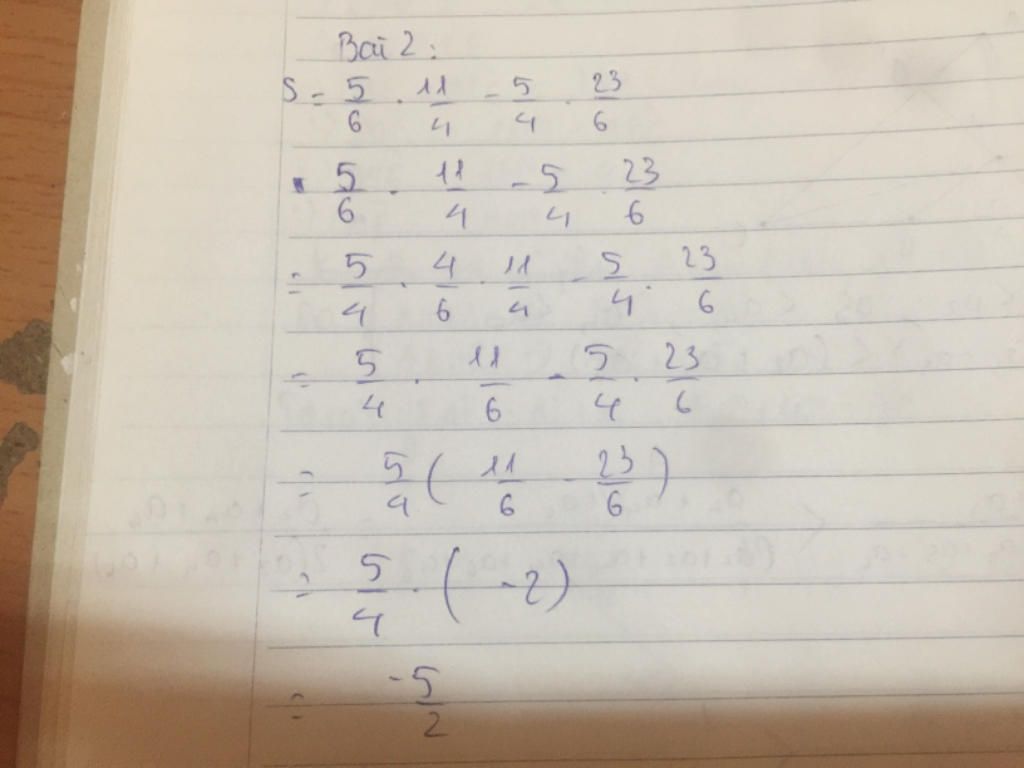 Bài 2:
S = 5/6 . 11/4 - 5/4 . 23/6
5/6 . 11/4 - 5/4 . 23/6
= 5/4 . 4/6 . 11/4 - 5/4 . 23/6
= 5/4 . 11/6 - 5/4 . 23/6
= 5/4 ( 11/6 - 23/6 )
= 5/4 . ( -2 )
= -5/2